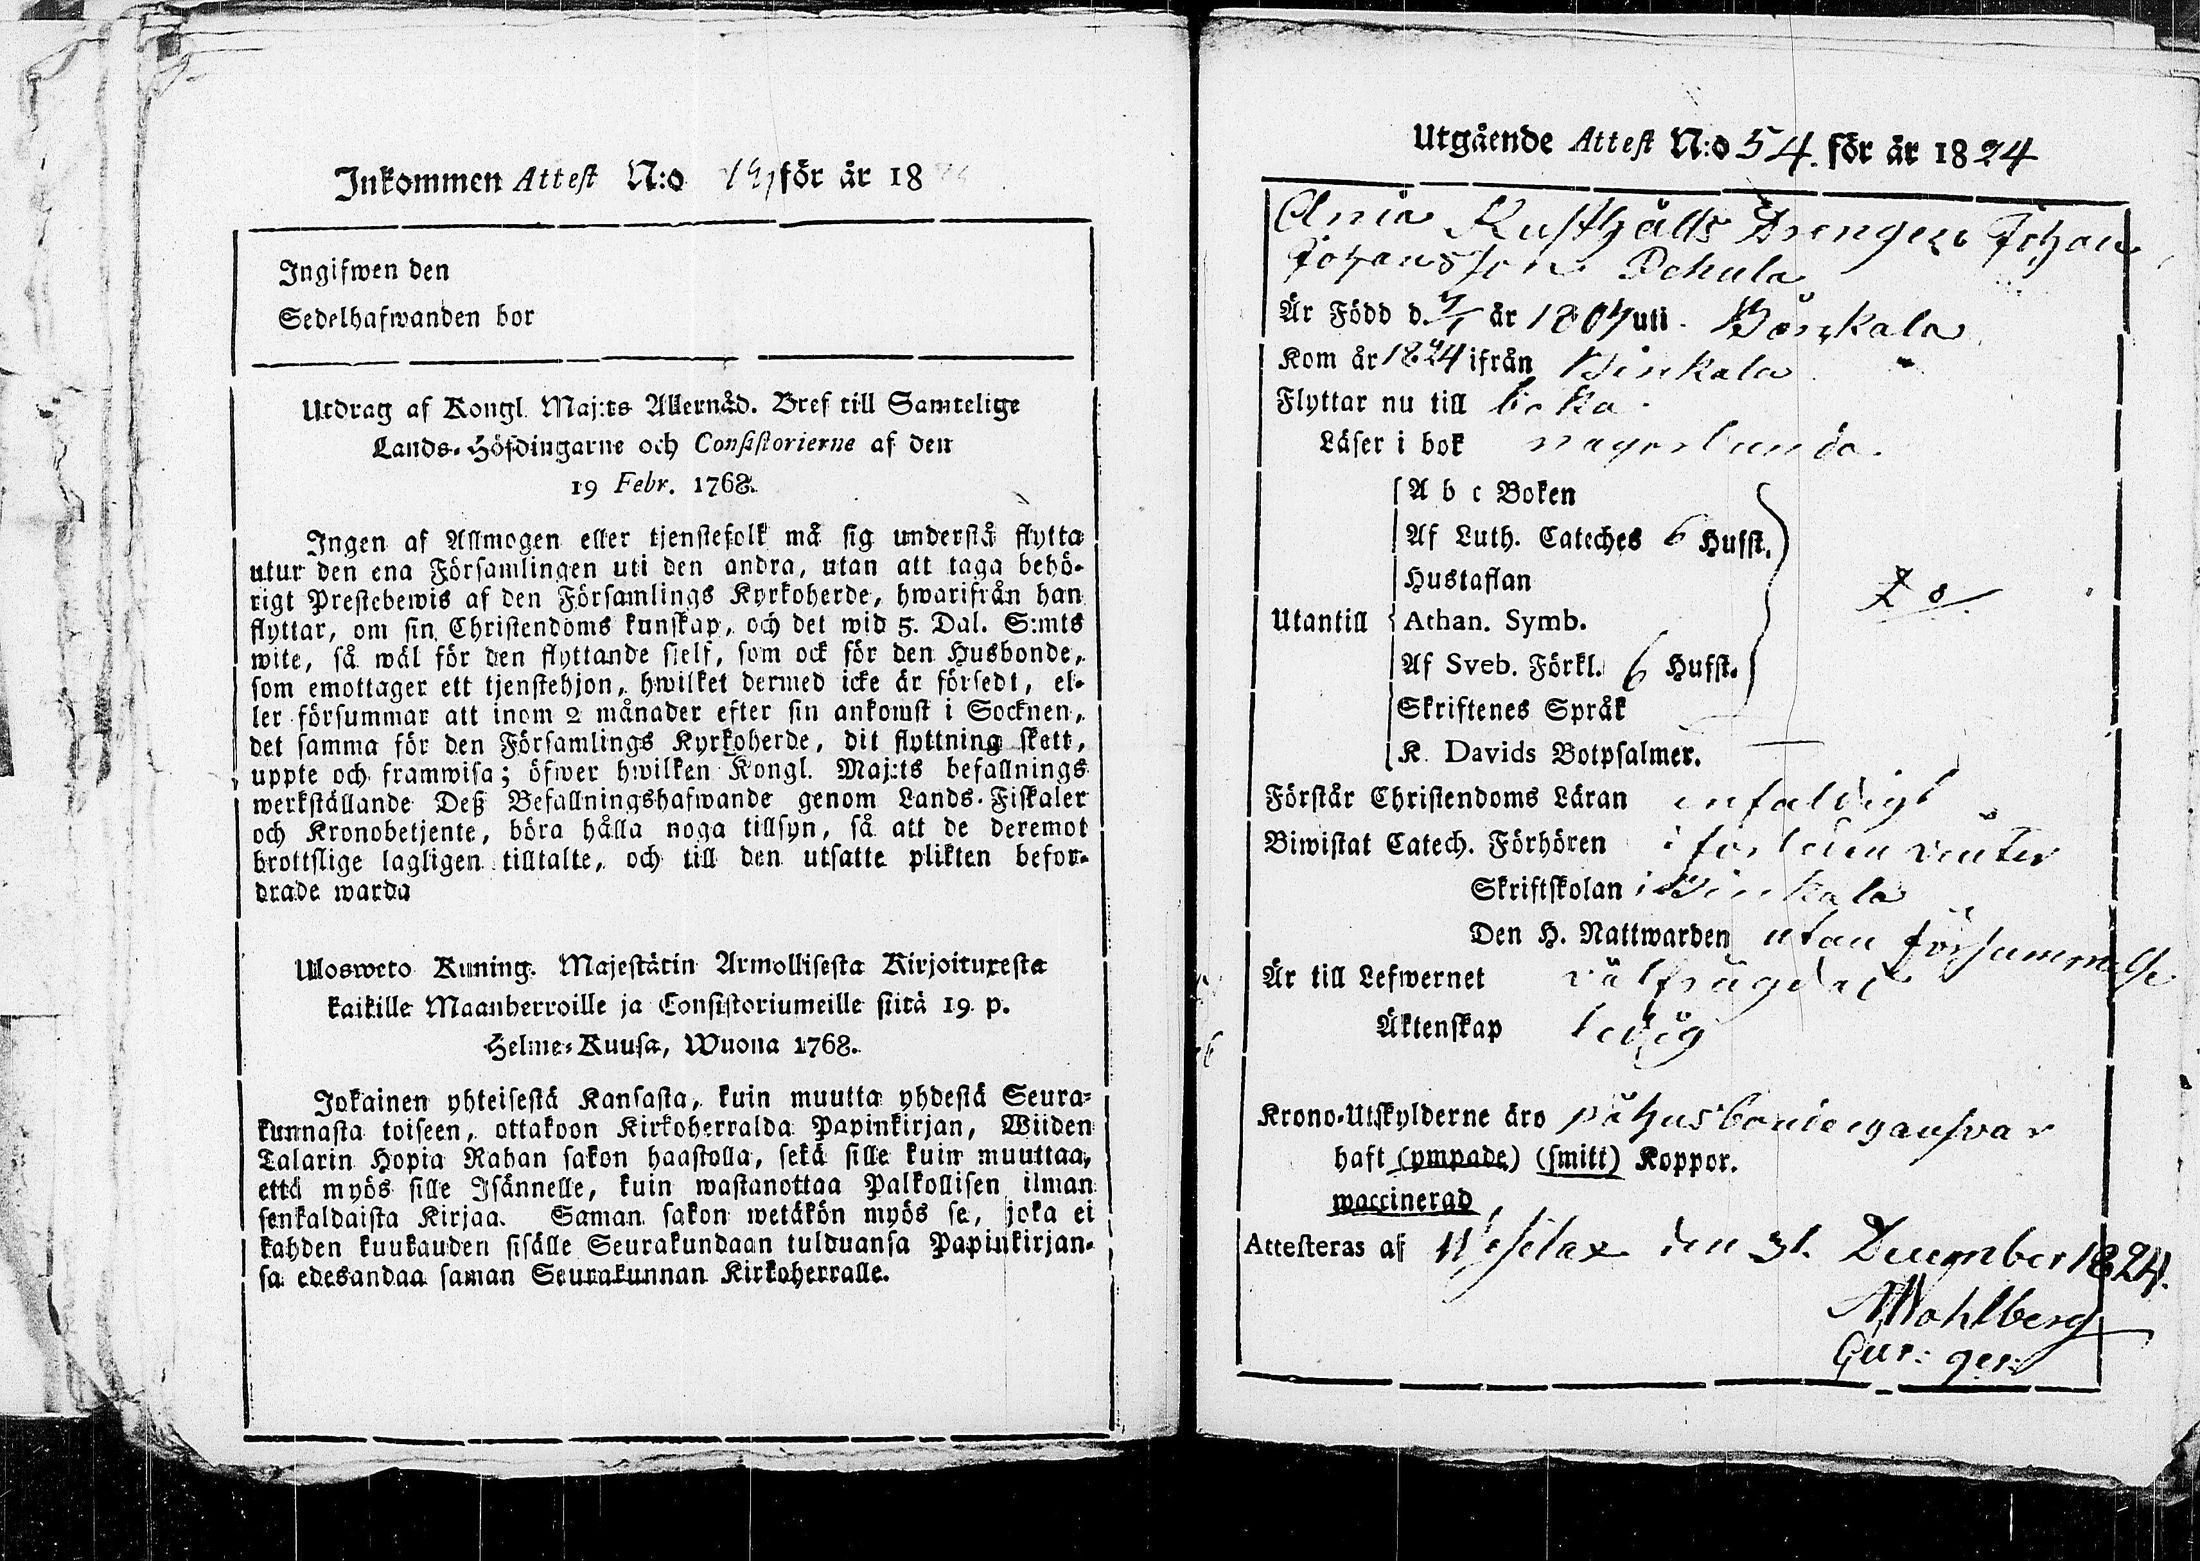 Inkommen Attest N:o 19 för år 18
Ingifwen den
Sedelhafwanden bor
Utdrag af Kongl. Maj:ts Allernåd. Bref till Samtelige
Lands-Höfdingarne och Consistorierne af den
19 Febr. 1768.
Ingen af Allmogen eller tjenstefolk må sig understå flytta
utur den ena Församlingen uti den andra, utan att taga behö-
rigt Prestebewis af den Församlings Kyrkoherde, hwarifrån han
flyttar, om sin Christendoms kunskap, och det wid 5. Dal. S:mts
wite, så wäl för den flyttande sielf, som ock för den Husbonde,
som emottager ett tjenstehjon, hwilket dermed icke är försedt, el-
ler försummar att inom 2 månader efter sin ankomst i Socknen,
det samma för den Församlings Kyrkoherde, dit flyttning skett,
uppte och framwisa; öfwer hwilken Kongl. Maj:ts befallnings
werkställande Deß Befallningshafwande genom Lands-Fiskaler
och Kronobetjente, böra hålla noga tillsyn, så att de deremot
brottslige lagligen tilltalte, och till den utsatte plikten befor-
drade warda
Ulosweto Kuning. Majestätin Armollisesta Kirjoituxesta
kaikille Maanherroille ja Consistoriumeille siitä 19. p.
Helme-Kuusa, Wuona 1768.
Jokainen yhteisestä Kansasta, kuin muutta yhdestä Seura-
kunnasta toiseen, ottakoon Kirkoherralda Papinkirjan, Wiiden
Talarin Hopia Rahan sakon haastolla, sekä sille kuin muuttaa,
että myös sille Isännelle, kuin wastanottaa Palkollisen ilman
senkaldaista Kirjaa. Saman sakon wetäkön myös se, joka ei
kahden kuukauden sisälle Seurakundaan tulduansa Papinkirjan-
sa edesandaa saman Seurakunnan Kirkoherralle.
Utgående Attest N:o 54. för år 1824
Rusthålls Drengen Johan
Johansson
Är Född d. är 1804 uti
Kom år 1824 ifrån Vinkala
Flyttar nu till
Läser i bok någorlunda.
A b c Boken
Af Luth. Cateches 6 Hufst.
Hustaflan
Utantill Athan. Symb.
Af Sveb. Förkl. 6 Hufst.
Skriftenes Språk
K. Davids Botpsalmer.
Förstår Christendoms Läran enfaldigt
Biwistat Catech. Förhören i förleden vinter
Skriftskolan i Vinkala
Den H. Nattwarden utan försummelse
Är till Lefwernet välfrägdad
Äktenskap ledig
Krono-Utskylderne äro på husbondens answar
haft (ympade) (smitt) Koppor.
waccinerad
Attesteras af Veselax den 31. December 1824.
A Wahlberg